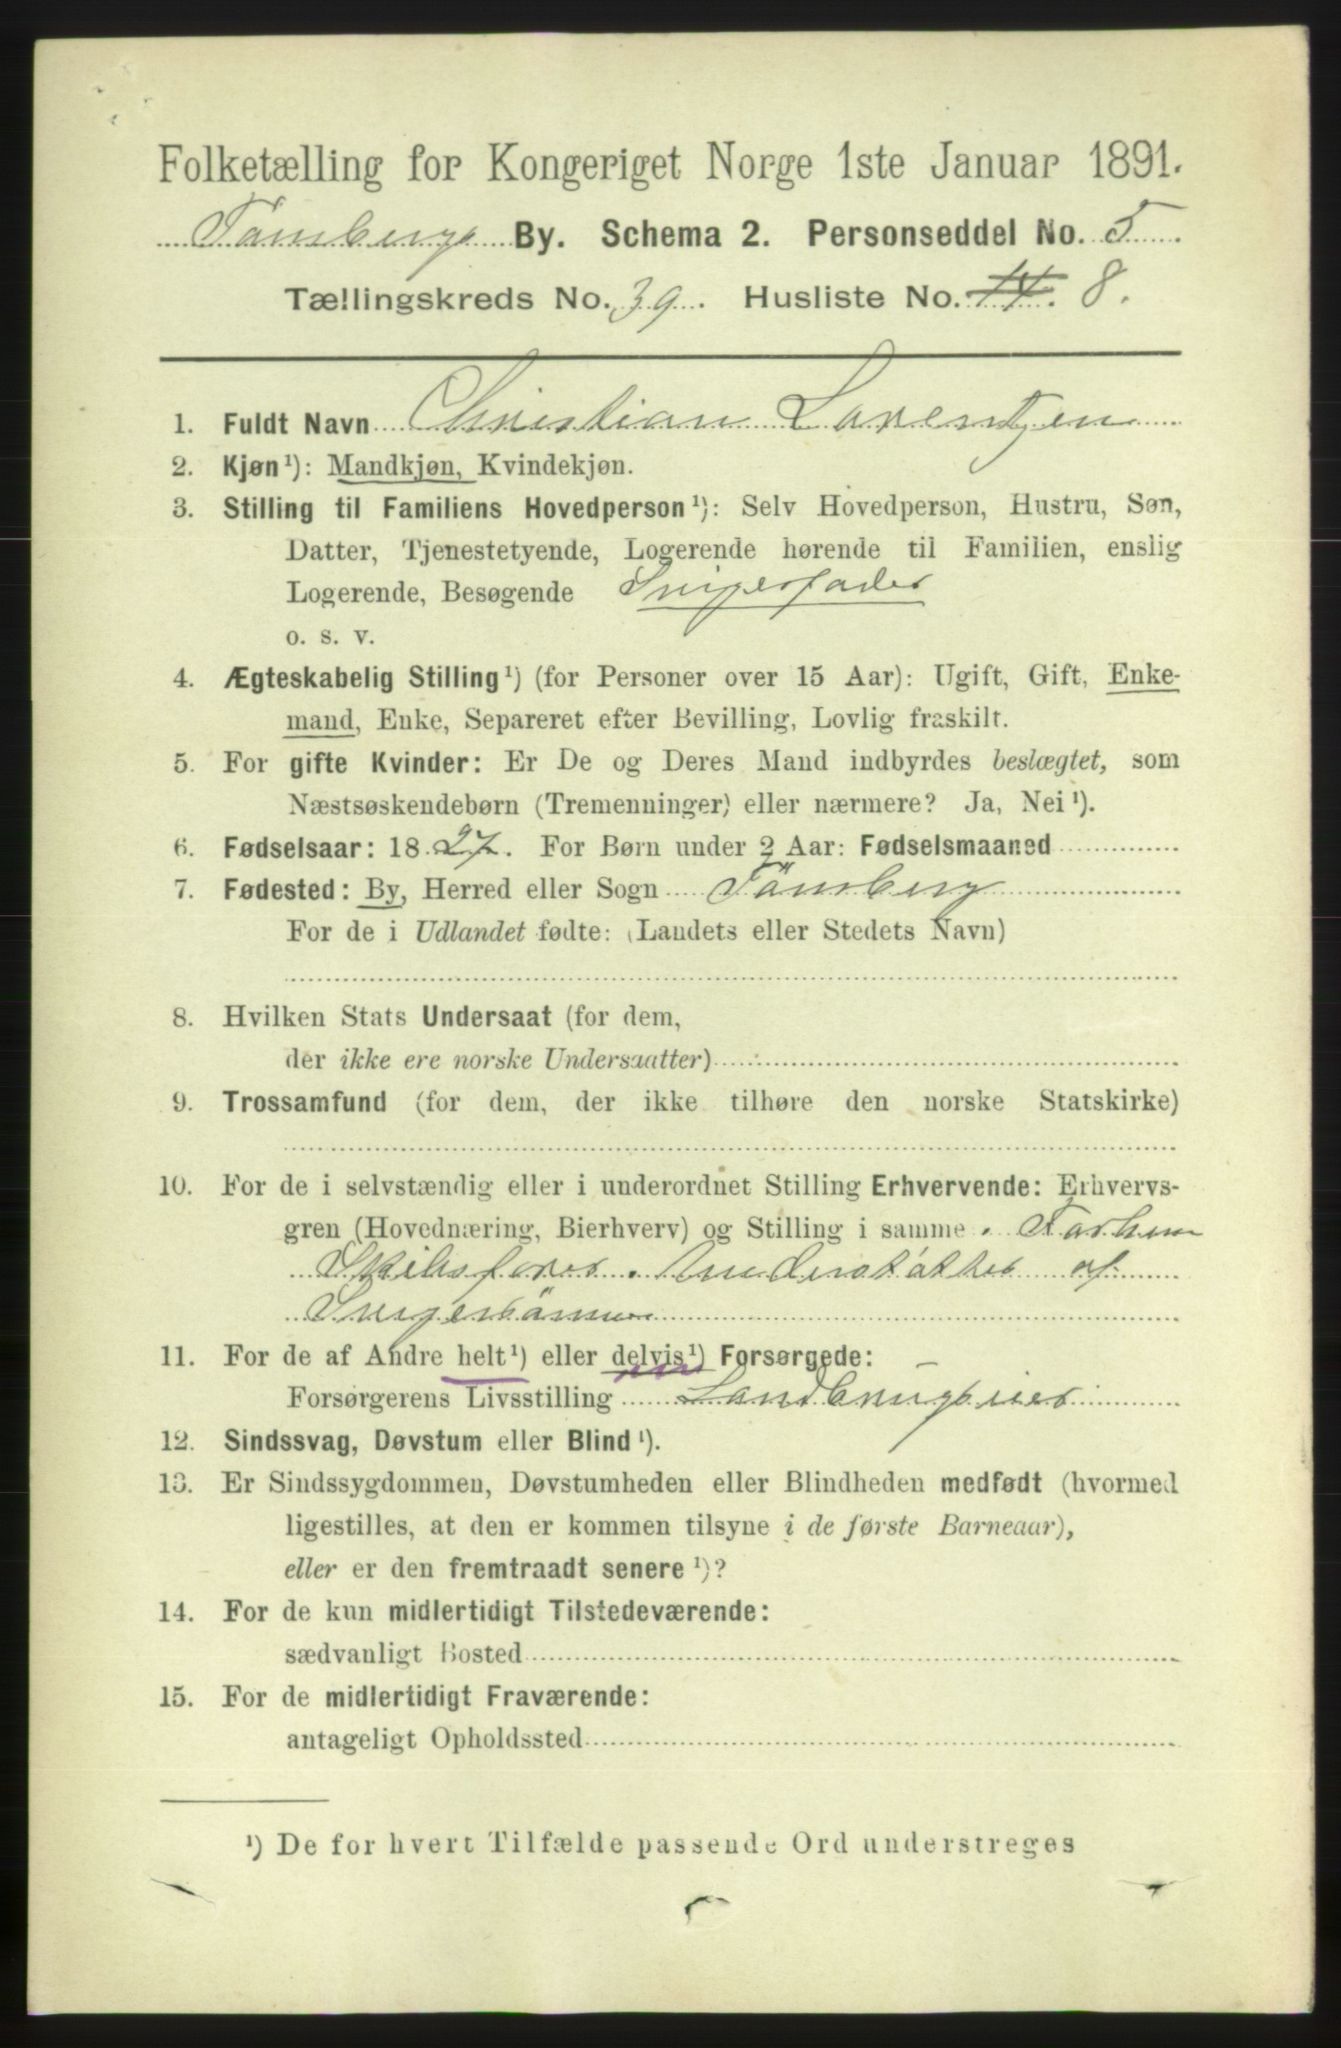 Folketælling for Kongeriget Norge 1ste Januar 1891.
Tønsbergs By. Schema 2. Personseddel No. 5
Tællingskreds No. 39. Husliste No. 14. 8.
1. Fuldt Navn Christian Lorentzen
2. Kjøn¹): Mandkjøn, Kvindekjøn.
3. Stilling til Familiens Hovedperson¹): Selv Hovedperson, Hustru, Søn,
Datter, Tjenestetyende, Logerende hørende til Familien, enslig
Logerende, Besøgende Svigerfader
o. s. v.
4. Ægteskabelig Stilling¹) (for Personer over 15 Aar): Ugift, Gift, Enke-
mand, Enke, Separeret efter Bevilling, Lovlig fraskilt.
5. For gifte Kvinder: Er De og Deres Mand indbyrdes beslægtet, som
Næstsøskendebørn (Tremenninger) eller nærmere? Ja, Nei¹).
6. Fødselsaar: 1827. For Børn under 2 Aar: Fødselsmaaned
7. Fødested: By, Herred eller Sogn Tønsberg
For de i Udlandet fødte: (Landets eller Stedets Navn)
8. Hvilken Stats Undersaat (for dem,
der ikke ere norske Undersaatter)
9. Trossamfund (for dem, der ikke tilhøre den norske Statskirke)
10. For de i selvstændig eller i underordnet Stilling Erhvervende: Erhvervs-
gren (Hovednæring, Bierhverv) og Stilling i samme. Forhen
Skibsfører. Understøttes af
Svigersønnen
11. For de af Andre helt¹) eller delvis¹) Forsørgede:
Forsørgerens Livsstilling Landbrugseier
12. Sindssvag, Døvstum eller Blind¹).
13. Er Sindssygdommen, Døvstumheden eller Blindheden medfødt (hvormed
ligestilles, at den er kommen tilsyne i de første Barneaar),
eller er den fremtraadt senere¹)?
14. For de kun midlertidigt Tilstedeværende:
sædvanligt Bosted
15. For de midlertidigt Fraværende:
antageligt Opholdssted
¹) De for hvert Tilfælde passende Ord understreges